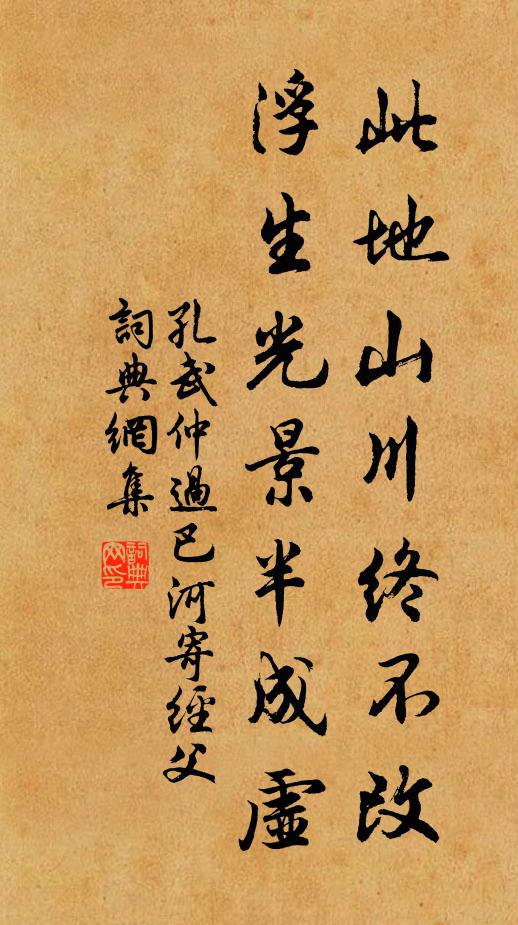 此地山川終不改
浮生光景半成虛
孔武仲過巴河寄經父
詞典網集
詞典網印